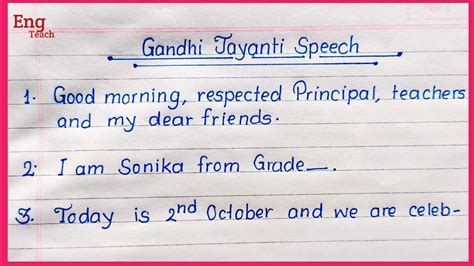 Eng
Teach
Gandhi Jayanti Speech
1. Good morning, respected Principal, teachers
and my dear friends.
2. I am Sonika from Grade__.
3. Today is 2nd October and we are celeb-